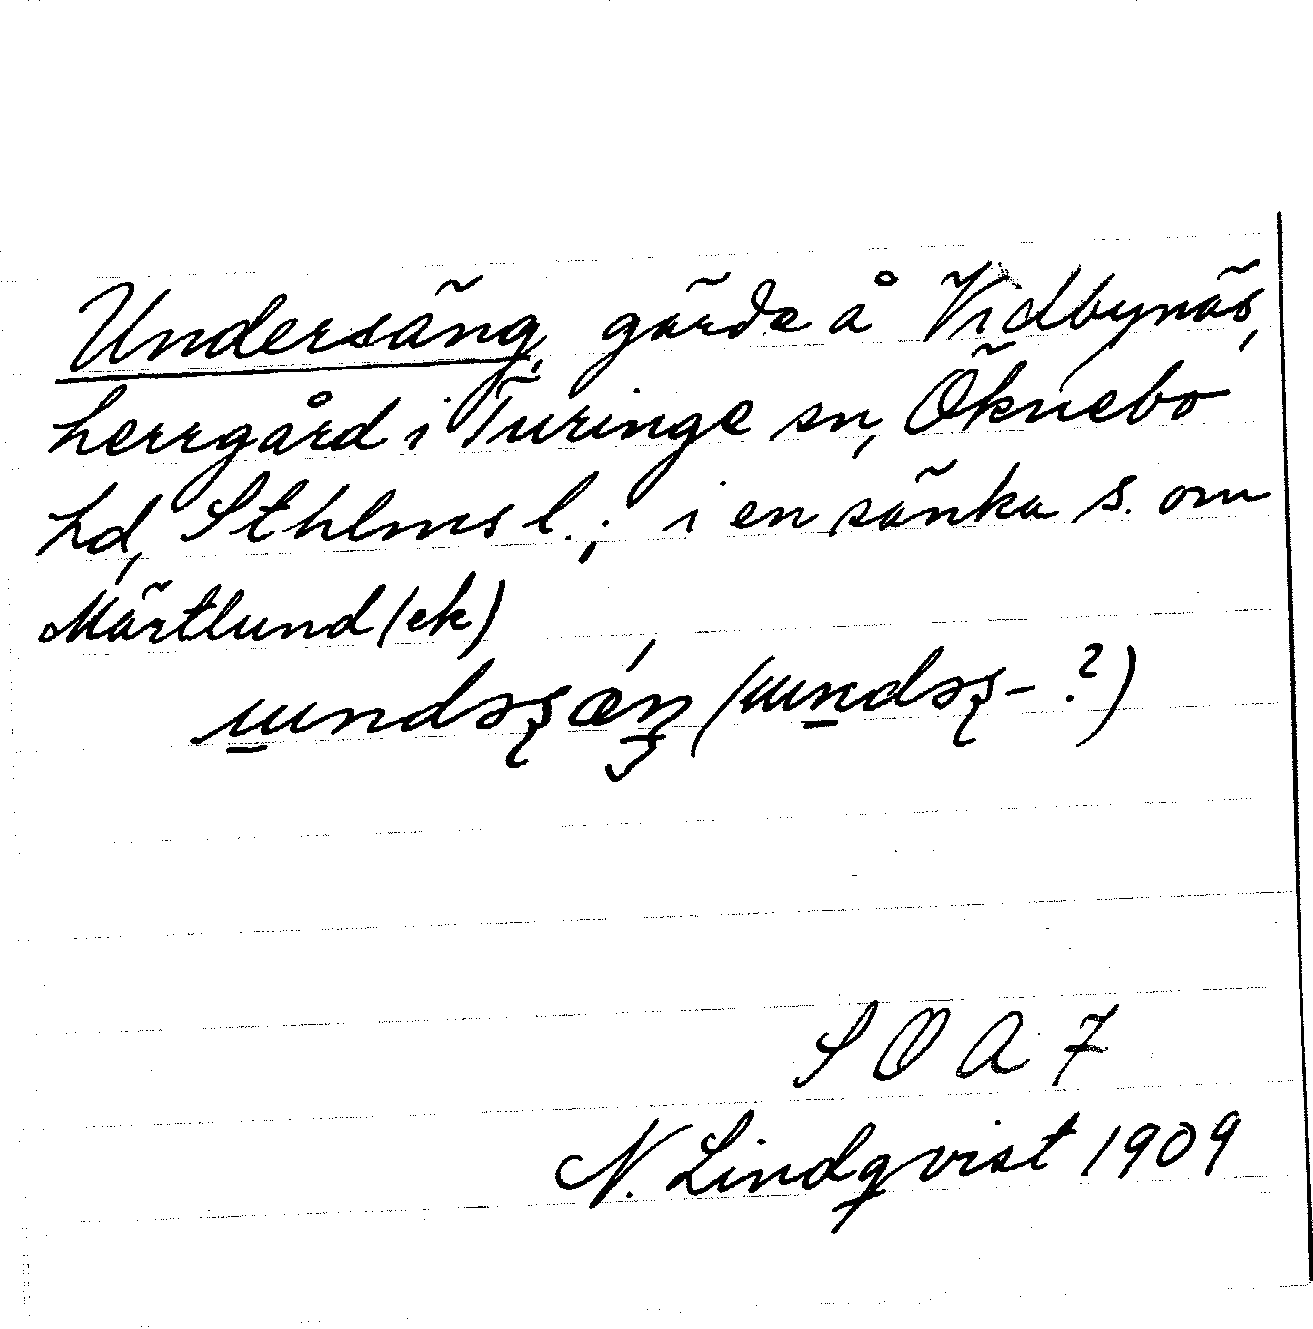 Undersäng, gärde å Vidbynäs,
herrgård i Turinge sn, Öknebo
hd, Sthlms l.; i en sänka s. om
Märtlund (ek)
( - ?)
S O A 7
N. Lindqvist 1909